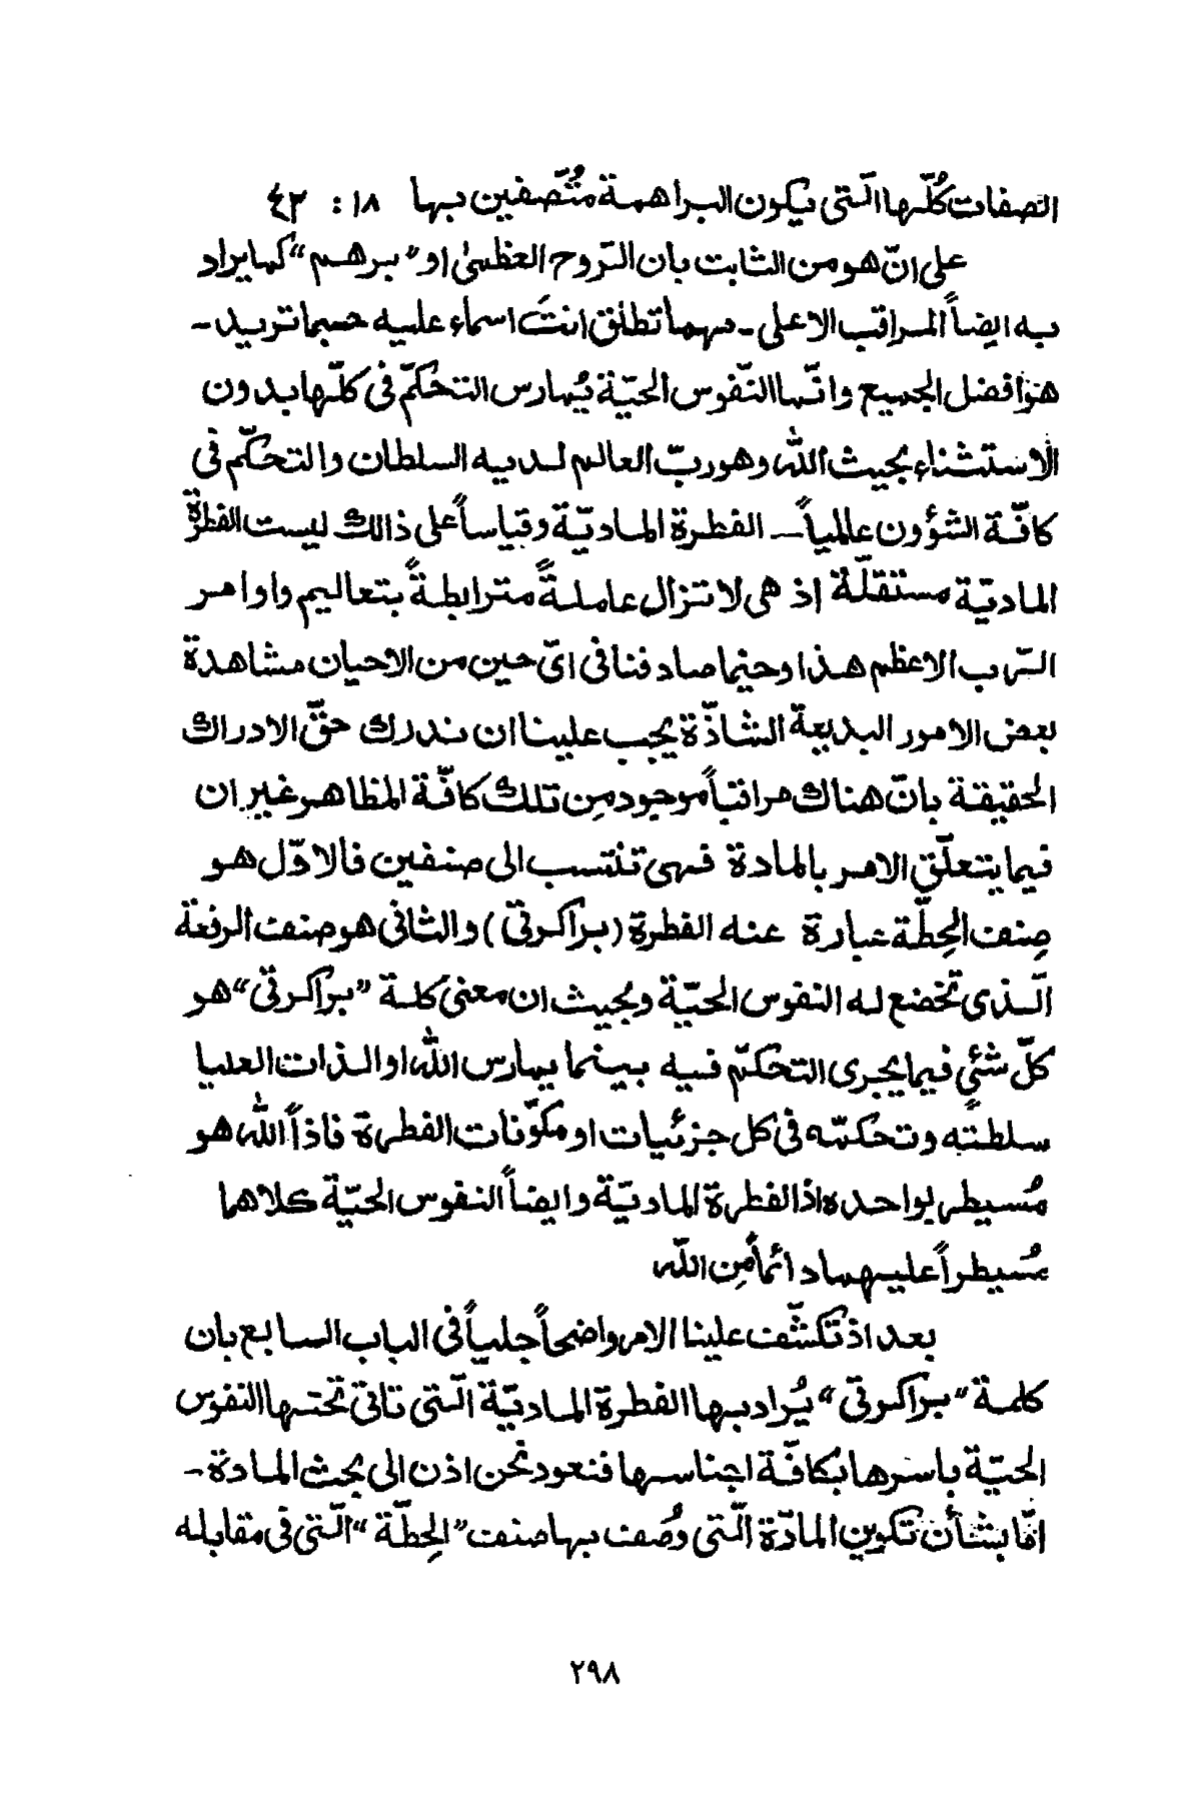 الصفات كُلّها الّتي يكون البراهمة مُتّصفين بها ١٨ : ٤٢
على انّ هو من الثابت بان الرّوح العظمىٰ او "برهم" كما يراد
به ايضاً المراقب الاعلى - مهما تطلق انتَ اسماء عليه حسبما تريد -
هو افضل الجميع وانّما النّفوس الحيّة يُمارس التحكّم في كلّها بدون
الاستثناء بحيث الله وهو ربّ العالم لديه السلطان والتحكّم في
كافّة الشؤون عالمياً - الفطرة الماديّة وقياساً على ذالك ليست الفطرة
الماديّة مستقلّة اذ هي لا تزال عاملةً مترابطةً بتعاليم واوامر
الرّب الاعظم هذا وحينما صادفنا في ايّ حين من الاحيان مشاهدة
بعض الامور البديعة الشاذّة يجب علينا ان ندرك حقّ الادراك
الحقيقة بانّ هناك مراقباً موجود مِن تلك كافّة المظاهر غير ان
فيما يتعلّق الامر بالمادة فهي تنتسب الى صنفين فالاوّل هو
صِنف الحِطّة عبارة عنه الفطرة (براكرتي) والثاني هو صنف الرفعة
الّذي تخضع له النفوس الحيّة وبحيث ان معنى كلمة "براكرتي" هو
كلّ شئي فيما يجرى التحكّم فيه بينما يمارس الله او الذات العليا
سلطته وتحكمّه في كل جزئيات او مكوّنات الفطرة فاذاً الله هو
مُسيطر بواحده اذا الفطرة الماديّة وايضاً النفوس الحيّة كلاهما
مُسيطراً عليهما دائماً مِن الله
بعد اذ تكشّف علينا الامر واضحاً جلياً في الباب السابع بان
كلمة "براكرتي" يُراد بها الفطرة الماديّة الّتي تاتي تحتها النفوس
الحيّة باسرها بكافّة اجناسها فنعود نحن اذن الى بحث المادة -
امّا بشأن تكوين المادّة الّتي وُصف بها صنف "الحِطّة" الّتي في مقابله
٢٩٨